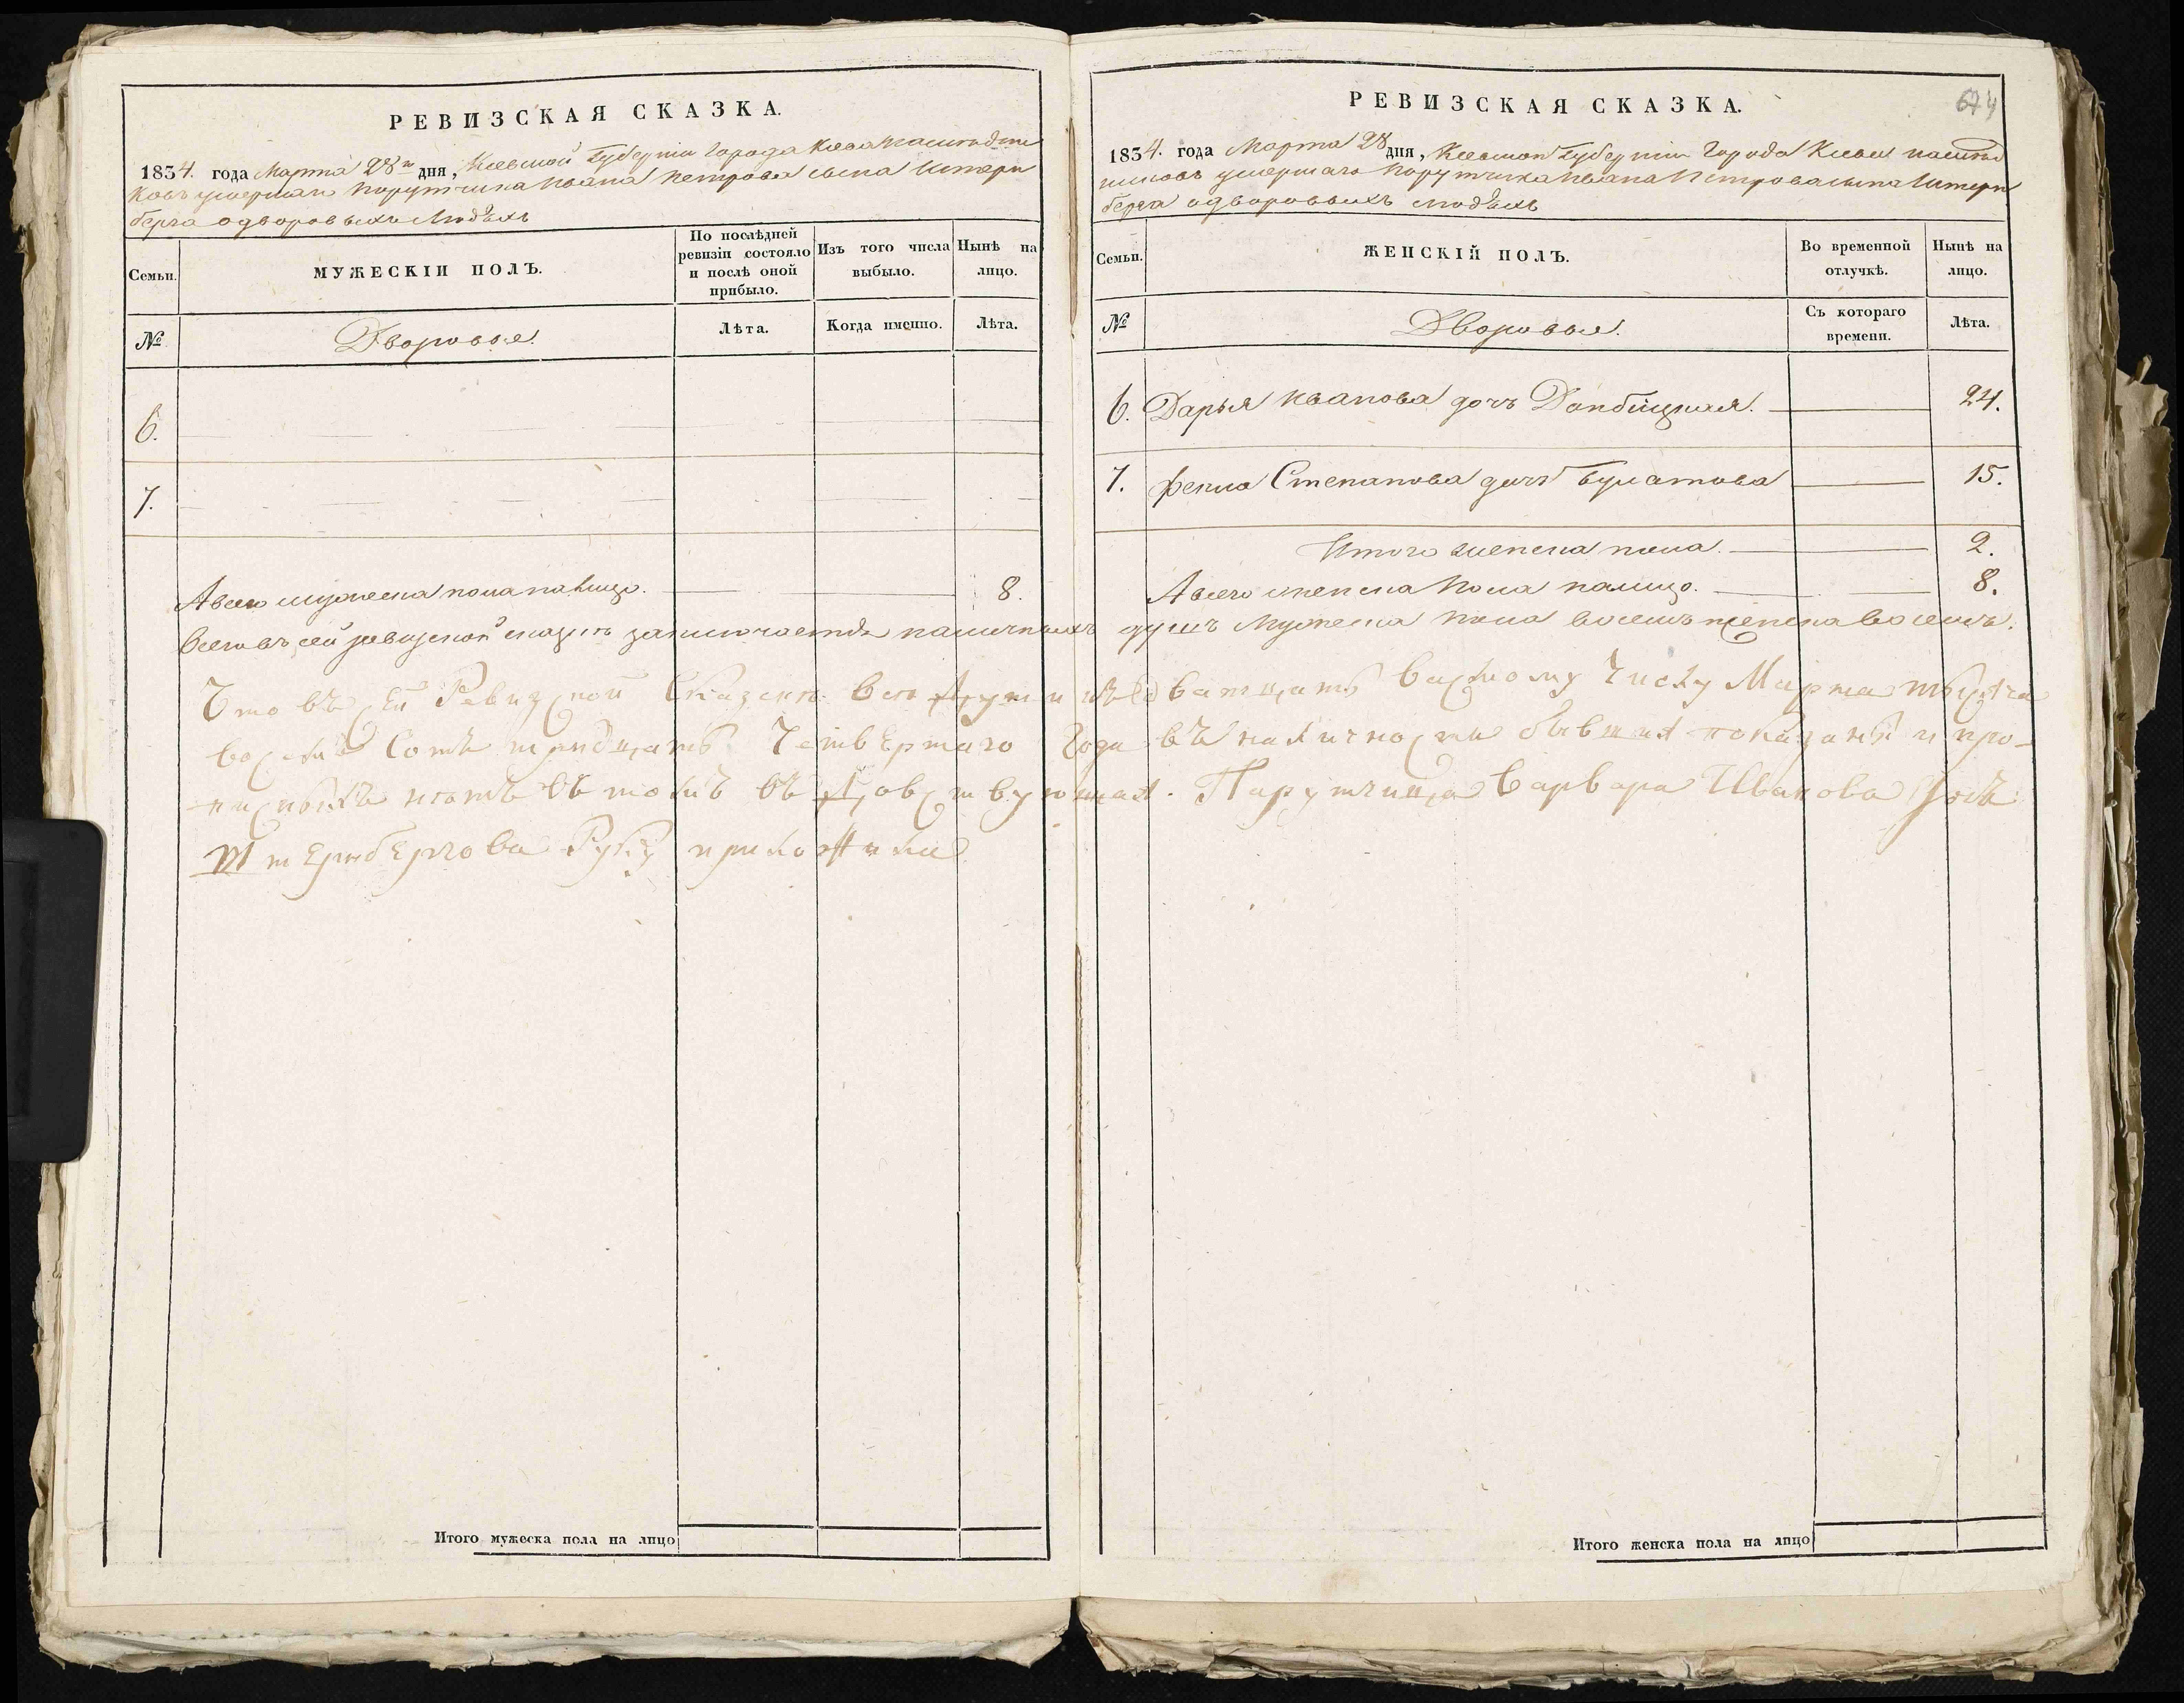 РЕВИЗСКАЯ СКАЗКА.
1834. года Марта 28 дня, Киевской Губернiи Города Киева наследни
ковъ умершаго Порутчика Ивана Петрова сына Штерн
берга одворовыхъ людѣхъ
Семьи.
МУЖЕСКІЙ ПОЛЪ.
По послѣдней ревизіи состояло и послѣ оной прибыло.
Изъ того числа выбыло.
Нынѣ на лицо.
№
Дворовые.
Лѣта.
Когда именно.
Лѣта.
6.
7.
А всего мужеска пола на лицо. 8.
Итого мужеска пола на лицо
РЕВИЗСКАЯ СКАЗКА.
1834. года Марта 28 дня, Киевской Губернiи Города Киева наслѣд
никовъ умершаго Порутчика Ивана Петрова сына Штерн
берга одворовыхъ людѣхъ
Семьи.
ЖЕНСКІЙ ПОЛЪ.
Во временной отлучкѣ.
Нынѣ на лицо.
№
Дворовые.
Съ котораго времени.
Лѣта.
6. Дарья Иванова дочь 24.
7. Фекла Степанова дочь Булатова 15.
Итого женска пола. 2.
А всего женска пола налицо. 8.
Всего въ сей ревизской сказкѣ заключается наличныхъ душъ мужеска пола восемь женска восемь.
Что въ сей Ревизской Сказски все души къ дватцать васмому Числу Марта тысяча
восемь Сотъ тридцать Четвертаго Года въ наличности бывшия показаны и про-
писныхъ нѣтъ въ томъ Парутчица Варвара Иванова дочь
Штернбергова Руку приложила
Итого женска пола на лицо